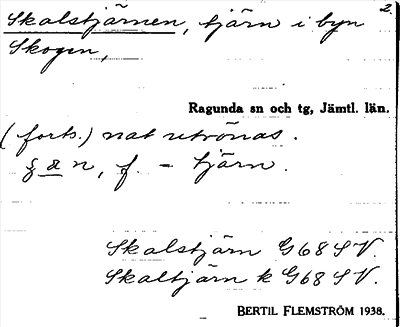 2.
Skalstjärnen, tjärn i byn
Skogen,
Ragunda sn och tg, Jämtl. län.
(forts.) nat utrönas.
n, f. – tjärn.
Skalstjärn G68 SV.
Skaltjärn k G68 SV.
BERTIL FLEMSTRÖM 1938.